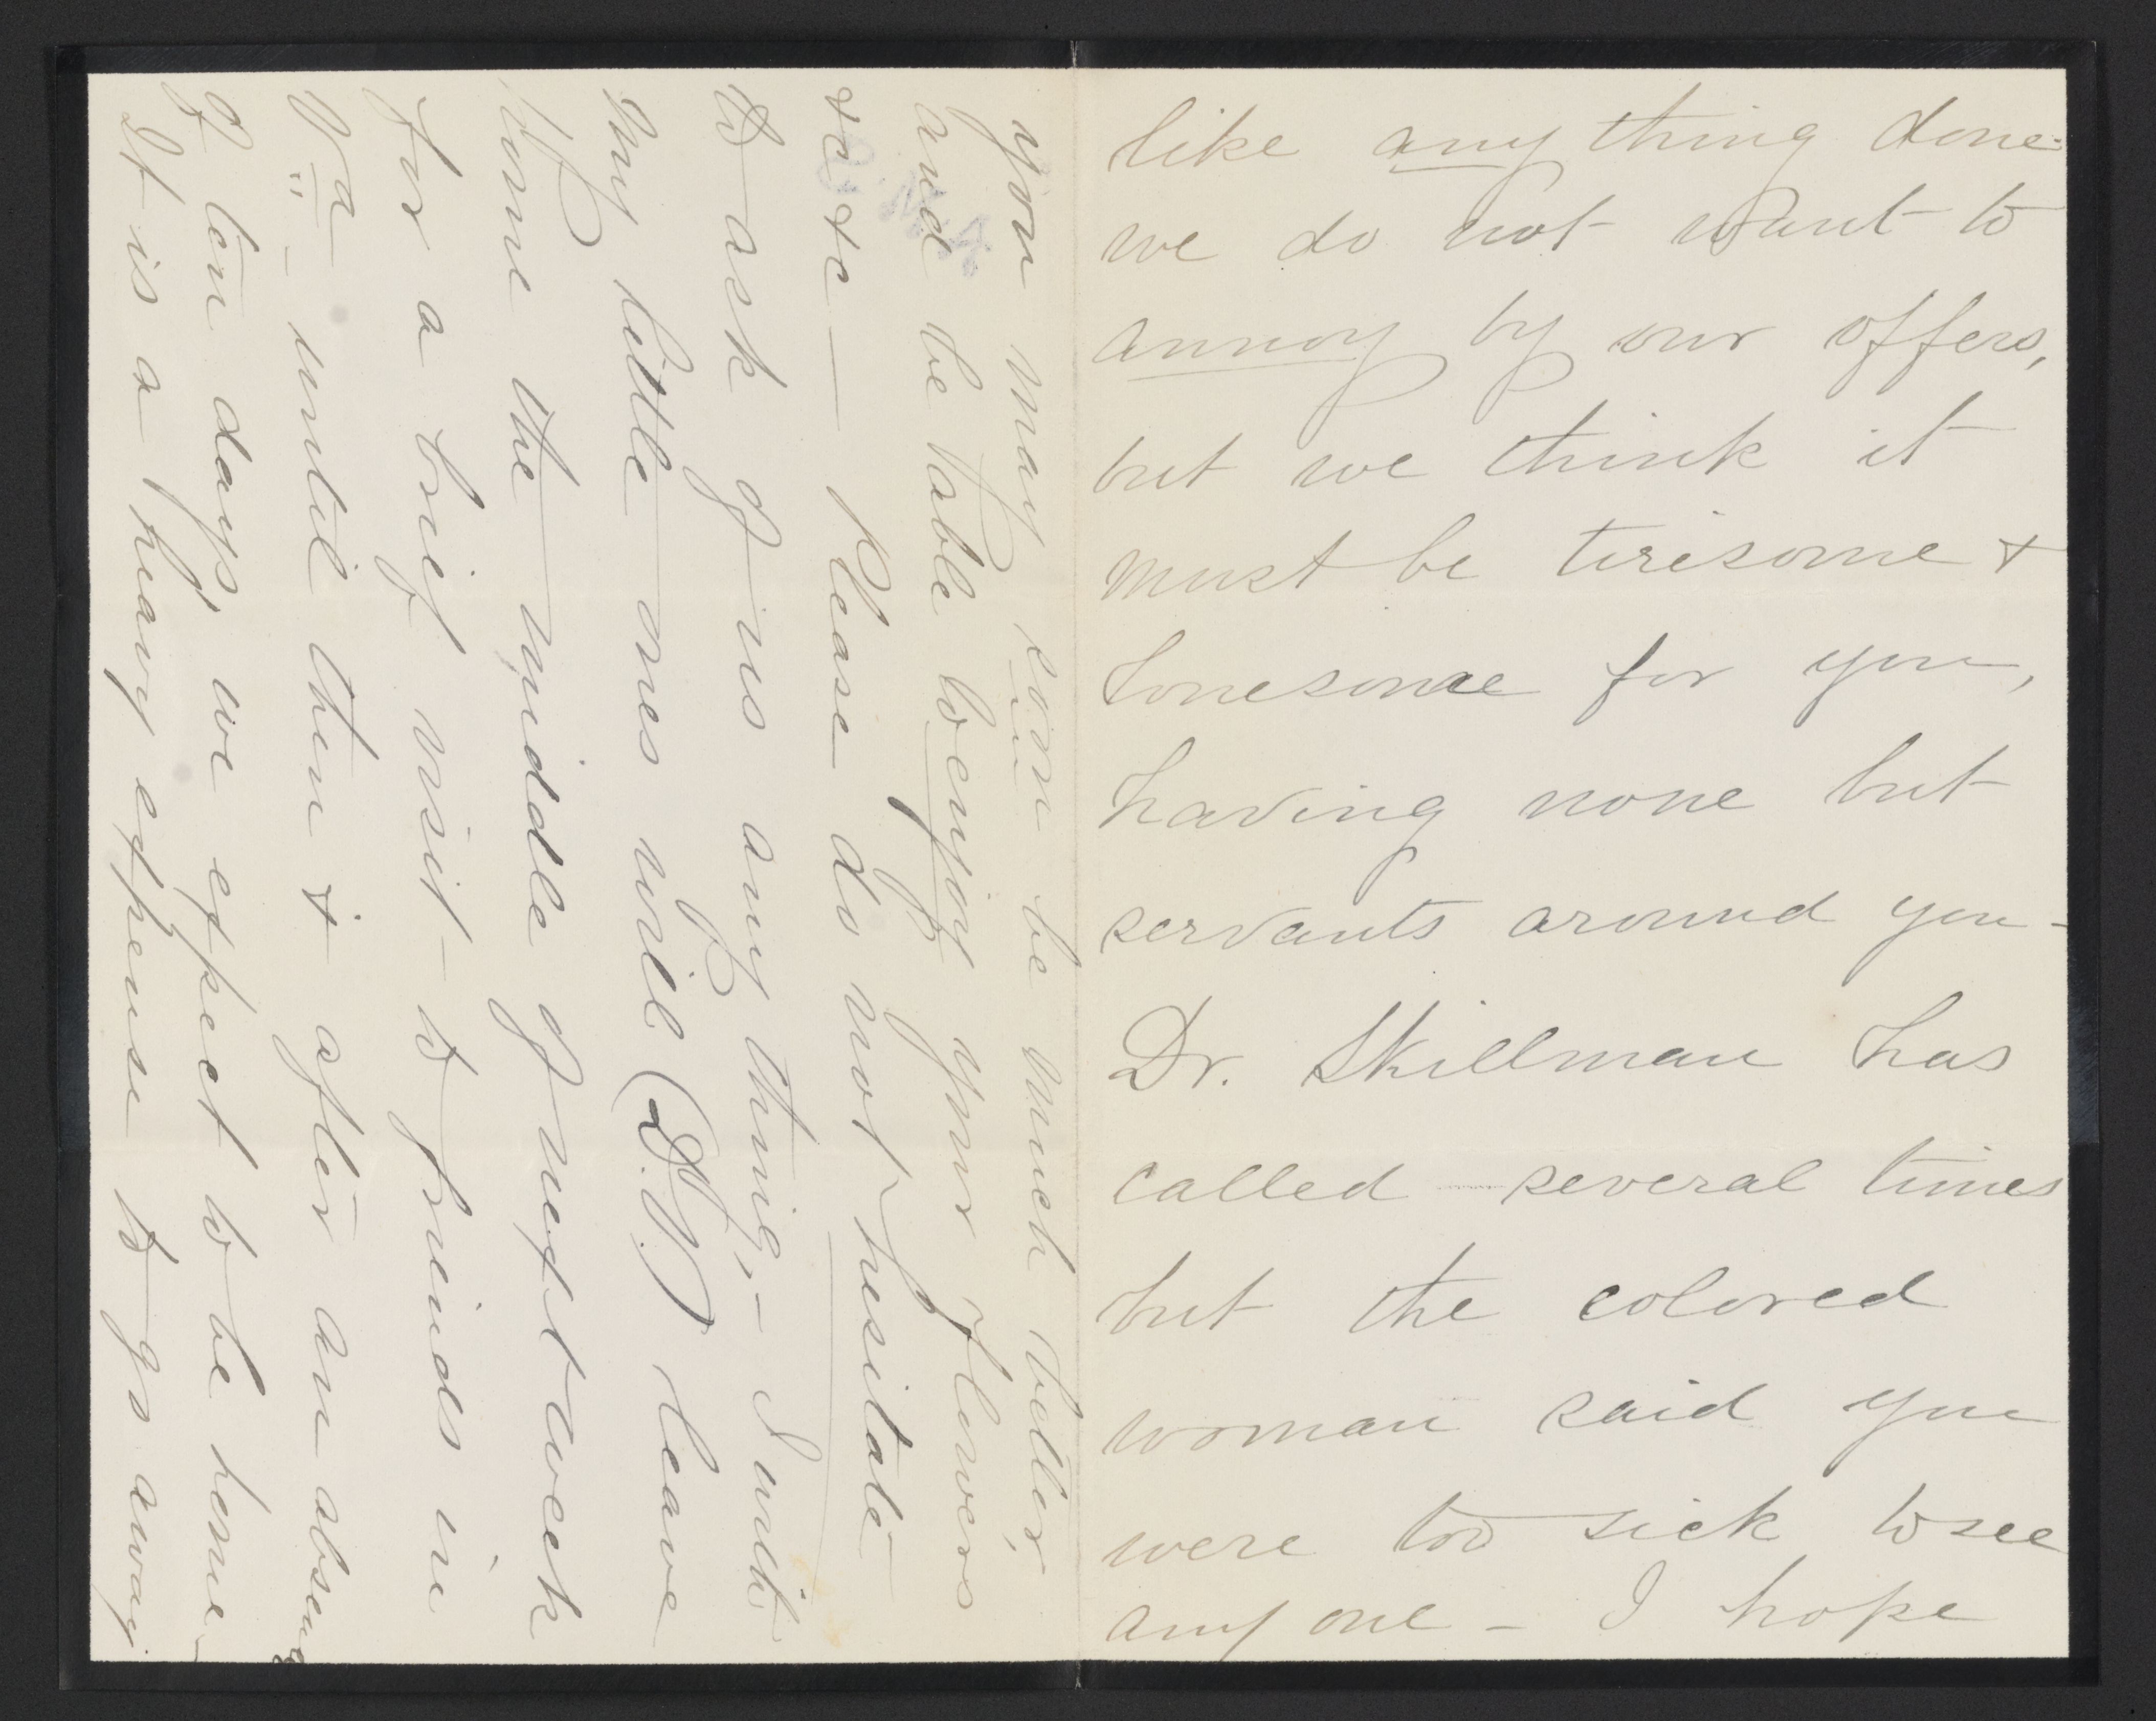 like any thing done-
we do not want to
annoy by our offers,
but we think it
must be tiresome +
lonesome for you,
having none but
servants around you-
Dr. Skillman has
called - several times
but the colored
woman said you
were too sick to see
any one - I hope
you may soon be much better,
and be able to enjoy your flowers
&c &c - Please do not hesitate
to ask of us any thing, - I with
my little ones will (D.V.) leave
home the middle of next week
for a brief visit - to friends in
Va - until then + after an absence
of ten days, we expect to be home -
It is a heavy expense to go away